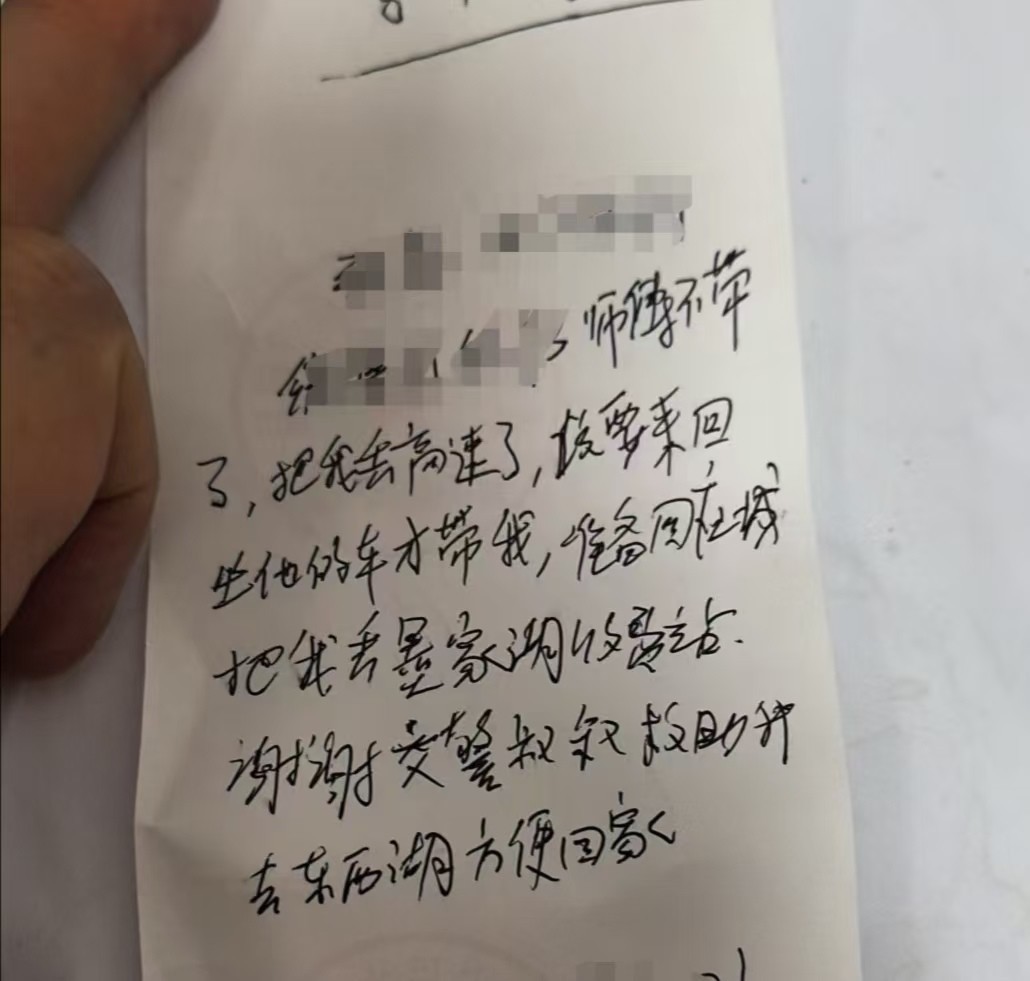 师傅不带
了，把我丢高速了，按要来回
坐他的车才带我，准备回在城
把我丢墨家湖收费站.
谢谢交警叔叔救助我
去东西湖方便回家